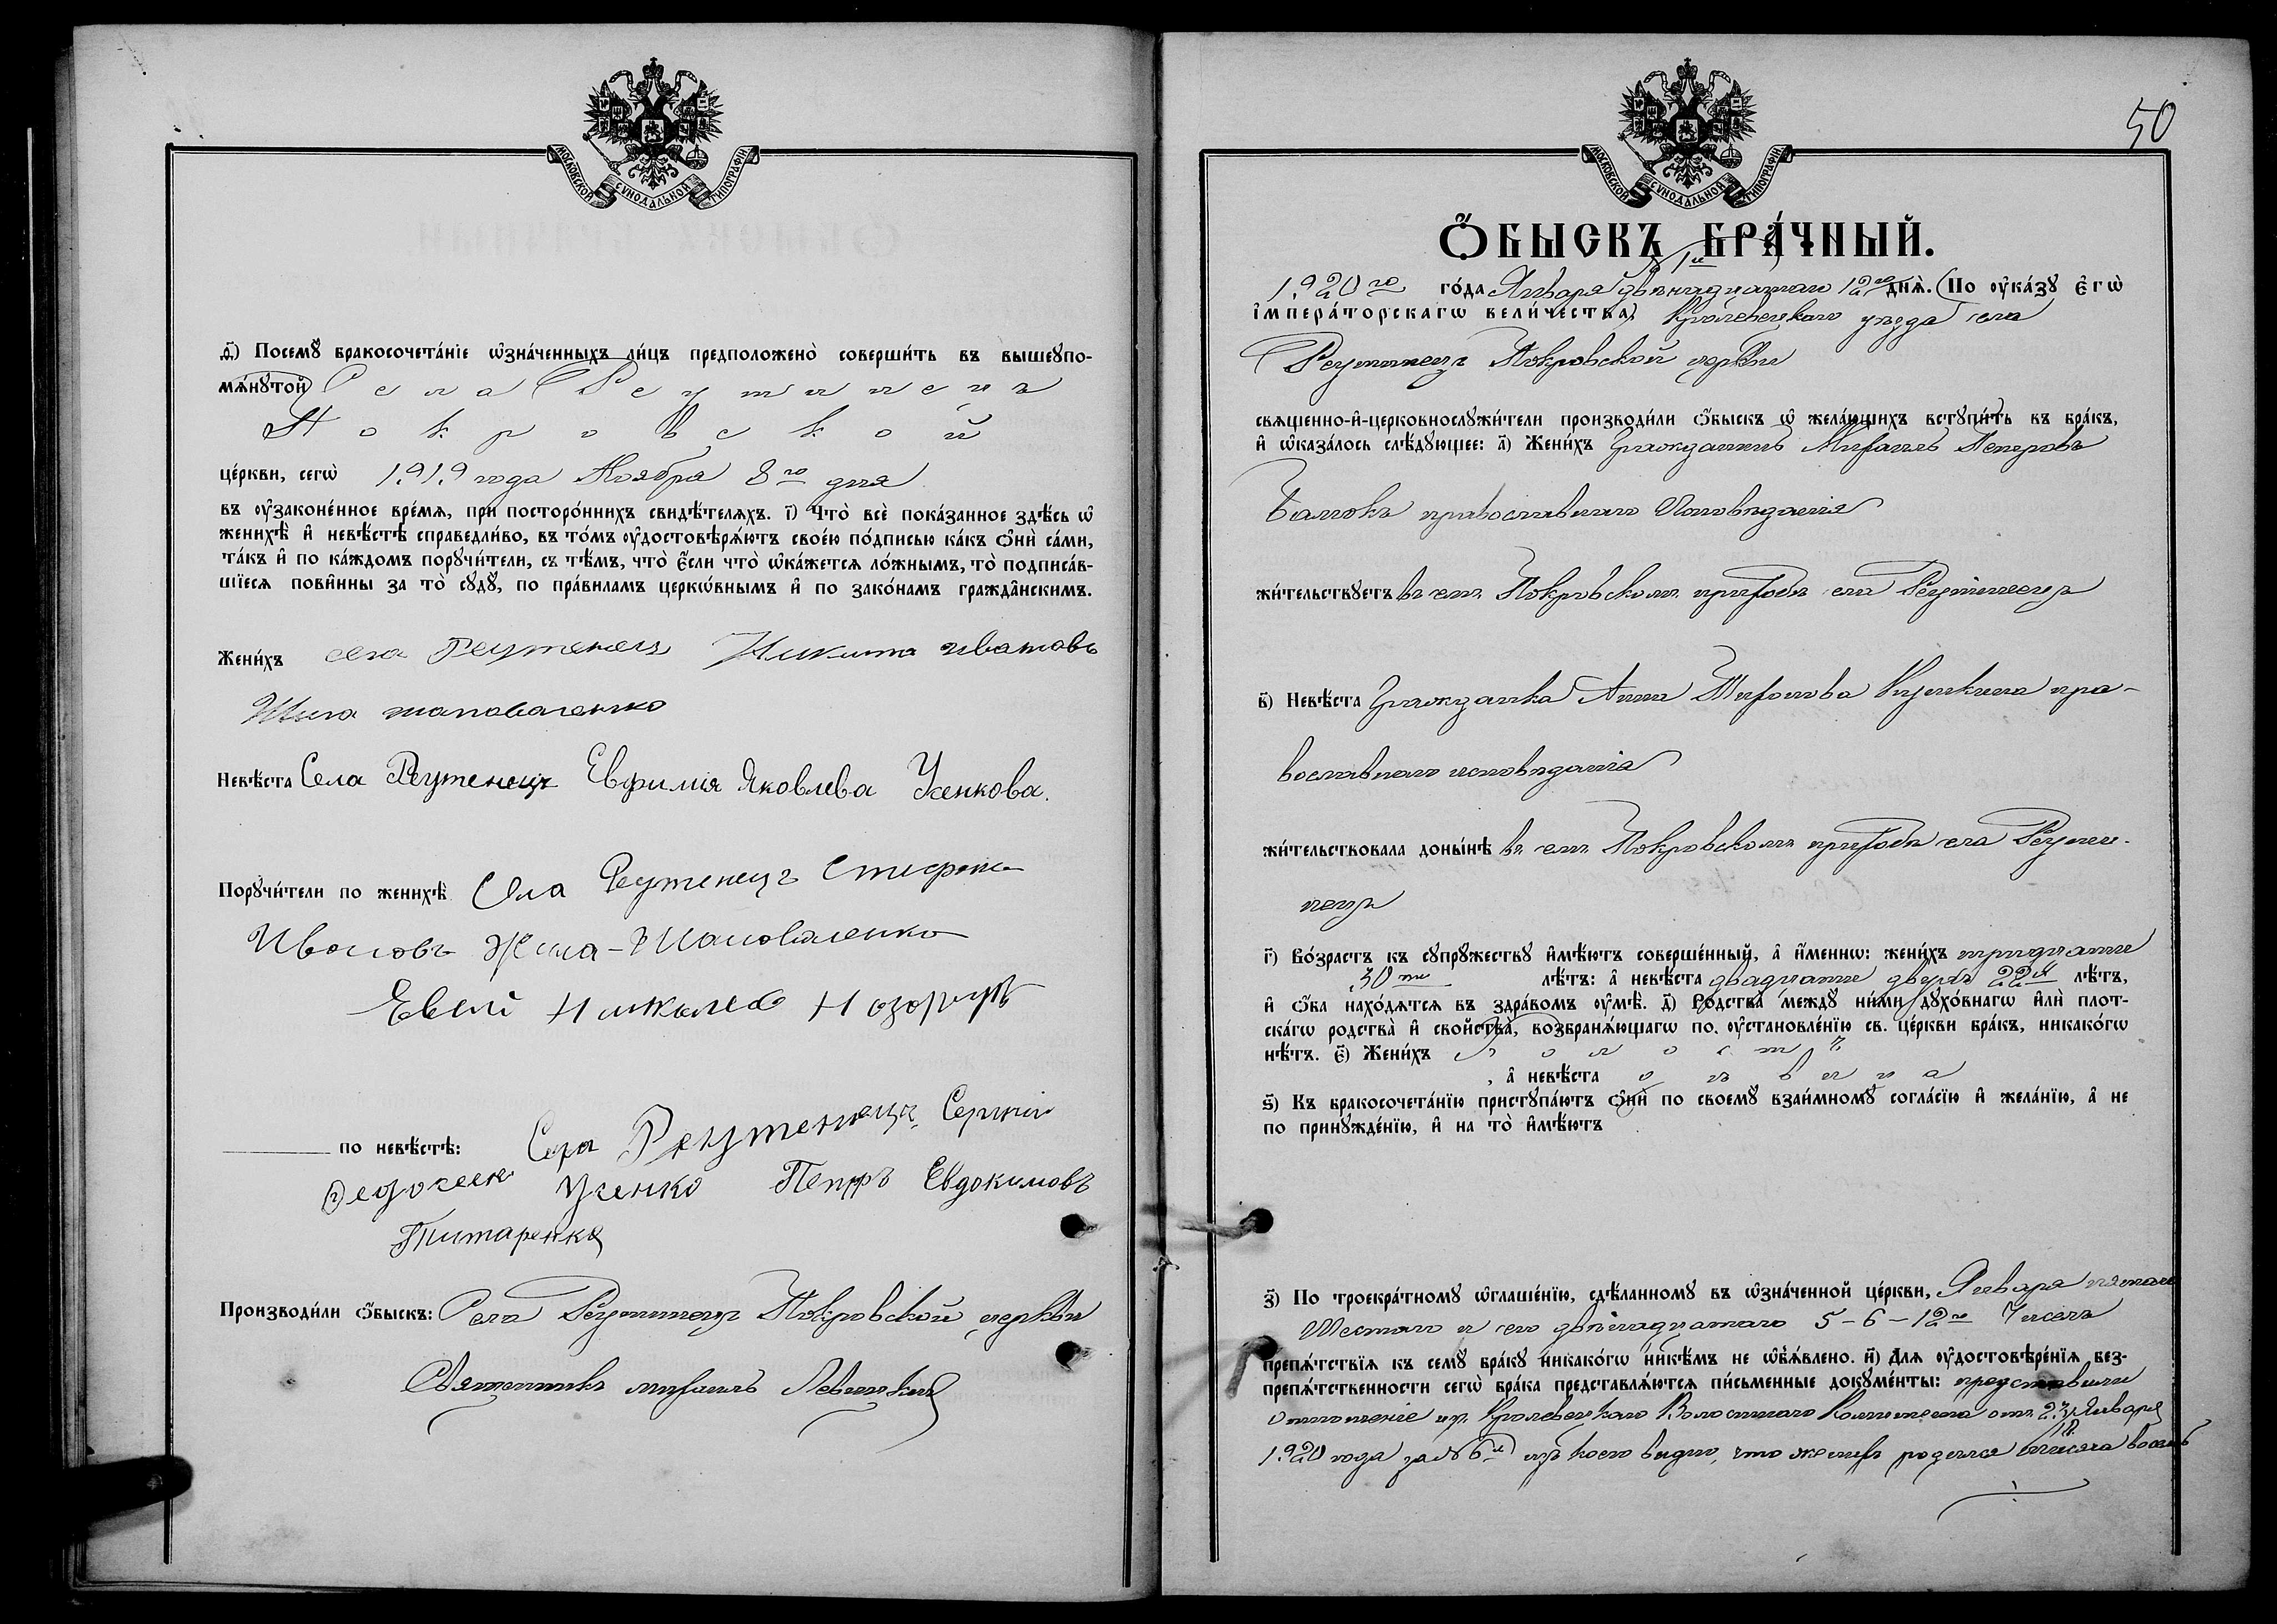 МОСКОВСКОЙ СѴНОДАЛЬНОЙ ТИПОГРАФІИ
ѳ҃) Посемꙋ̀ бракосочета́нїе ѡ҆зна́ченныхъ ли́цъ предположено̀ соверши́ть въ вышеꙋпо-
мѧ́нꙋтой Села Реутинецъ
Покровской
це́ркви, сегѡ̀ 1919 года Ноября 8го дня
въ ᲂу҆законе́нное вре́мѧ, при посторо́ннихъ свидѣ́телѧхъ. і҃) Что̀ всѐ пока́занное здѣ́сь ѡ҆
женихѣ̀ и҆ невѣ́стѣ справедли́во, въ то́мъ ᲂу҆достовѣрѧ́ютъ свое́ю по́дписью ка́къ ѻ҆нѝ са́ми,
та́къ и҆ по ка́ждомъ порꙋчи́тели, съ тѣ́мъ, что̀ є҆́сли что̀ ѡ҆ка́жетсѧ ло́жнымъ, то̀ подписа́в-
шїесѧ пови́нны за то̀ сꙋдꙋ̀, по пра́виламъ церко́внымъ и҆ по зако́намъ гражда́нскимъ.
Жени́хъ села Реутенецъ Никита ивановъ
Жила шаповаленко
Невѣ́ста Села Реутенецъ Евфимія Яковлева Усенкова.
Порꙋчи́тели по женихѣ̀ Села Реутенецъ Стефанъ
Ивановъ Жила-Шаповаленко
Евсей Николаев
по невѣ́стѣ: Села Реутенецъ Сергій
Усенко Петръ Евдокимовъ
Титаренко
Производи́ли ѻ҆́быскъ: Села Реутинецъ Покровской церкви
Священникъ михаилъ Левицкій
50
МОСКОВСКОЙ СѴНОДАЛЬНОЙ ТИПОГРАФІИ
Ѻ҆́БЫСКЪ БРА́ЧНЫЙ.
№ 1й
1920го го́да Января двѣнадцатаго 12го днѧ̀. (По ᲂу҆ка́зꙋ Є҆гѡ̀
і҆мпера́торскагѡ вели́чества) Кролевецкаго уѣзда села
Реутинецъ Покровской церкви
свѧще́нно-и҆-церковнослꙋжи́тели производи́ли ѻ҆́быскъ ѡ҆ жела́ющихъ встꙋпи́ть въ бра́къ,
и҆ ѡ҆каза́лось слѣ́дꙋющее: а҃) Жени́хъ Гражданинъ Михаилъ Петровъ
Балюкъ православнаго Исповѣданія
жи́тельствꙋетъ въ семъ Покровскомъ приходѣ села Реутинецъ
в҃) Невѣ́ста Гражданка Анна Тихонова Куцекина пра-
вославнаго исповѣданія
жи́тельствовала доны́нѣ въ семъ Покровскомъ приходѣ села Реути-
нецъ
г҃) Во́зрастъ къ сꙋпрꙋ́жествꙋ и҆мѣ́ютъ соверше́нный, а҆ и҆́меннѡ: жени́хъ тридцати
30ти лѣ́тъ: а҆ невѣ́ста двадцати двухъ 22х лѣ́тъ,
и҆ ѻ҆́ба нахо́дѧтсѧ въ здра́вомъ ᲂу҆мѣ̀. д҃) Родства̀ междꙋ̀ ни́ми дꙋхо́внагѡ и҆лѝ плот-
ска́гѡ родства̀ и҆ свойства̀, возбранѧ́ющагѡ по. ᲂу҆становле́нїю св. це́ркви бра́къ, никако́гѡ
нѣ́тъ. є҃) Жени́хъ холостъ
, а҆ невѣ́ста дѣвица
ѕ҃) Къ бракосочета́нїю пристꙋпа́ютъ ѻ҆нѝ по своемꙋ̀ взаи́мномꙋ согла́сїю и҆ жела́нїю, а҆ не
по принꙋжде́нїю, и҆ на то̀ и҆мѣ́ютъ
з҃) По троекра́тномꙋ ѡ҆глаше́нїю, сдѣ́ланномꙋ въ ѡ҆зна́ченной це́ркви, Января пятаго
Шестаго и сего двѣнадцатаго 5-6-12го Чиселъ
препѧ́тствїѧ къ семꙋ̀ бра́кꙋ никако́гѡ никѣ́мъ не ѡ҆б̾ѧ́влено. и҃) Длѧ ᲂу҆достовѣре́нїѧ без-
препѧ́тственности сегѡ̀ бра́ка представлѧ́ютсѧ пи́сьменные докꙋме́нты: представили
Отношеніе Кролевецкаго Волостнаго Комитета отъ Января
1920 года за № 6й изъ коего видно, что женихъ родился тысяча восемь